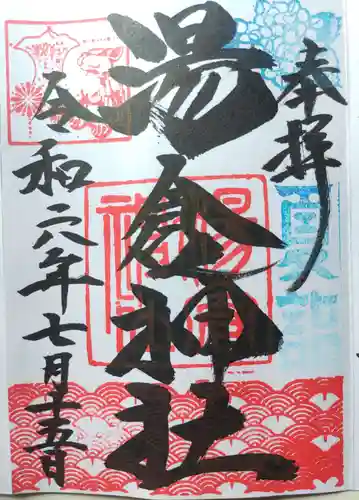 奉拝
湯倉神社
令和六年七月十五日